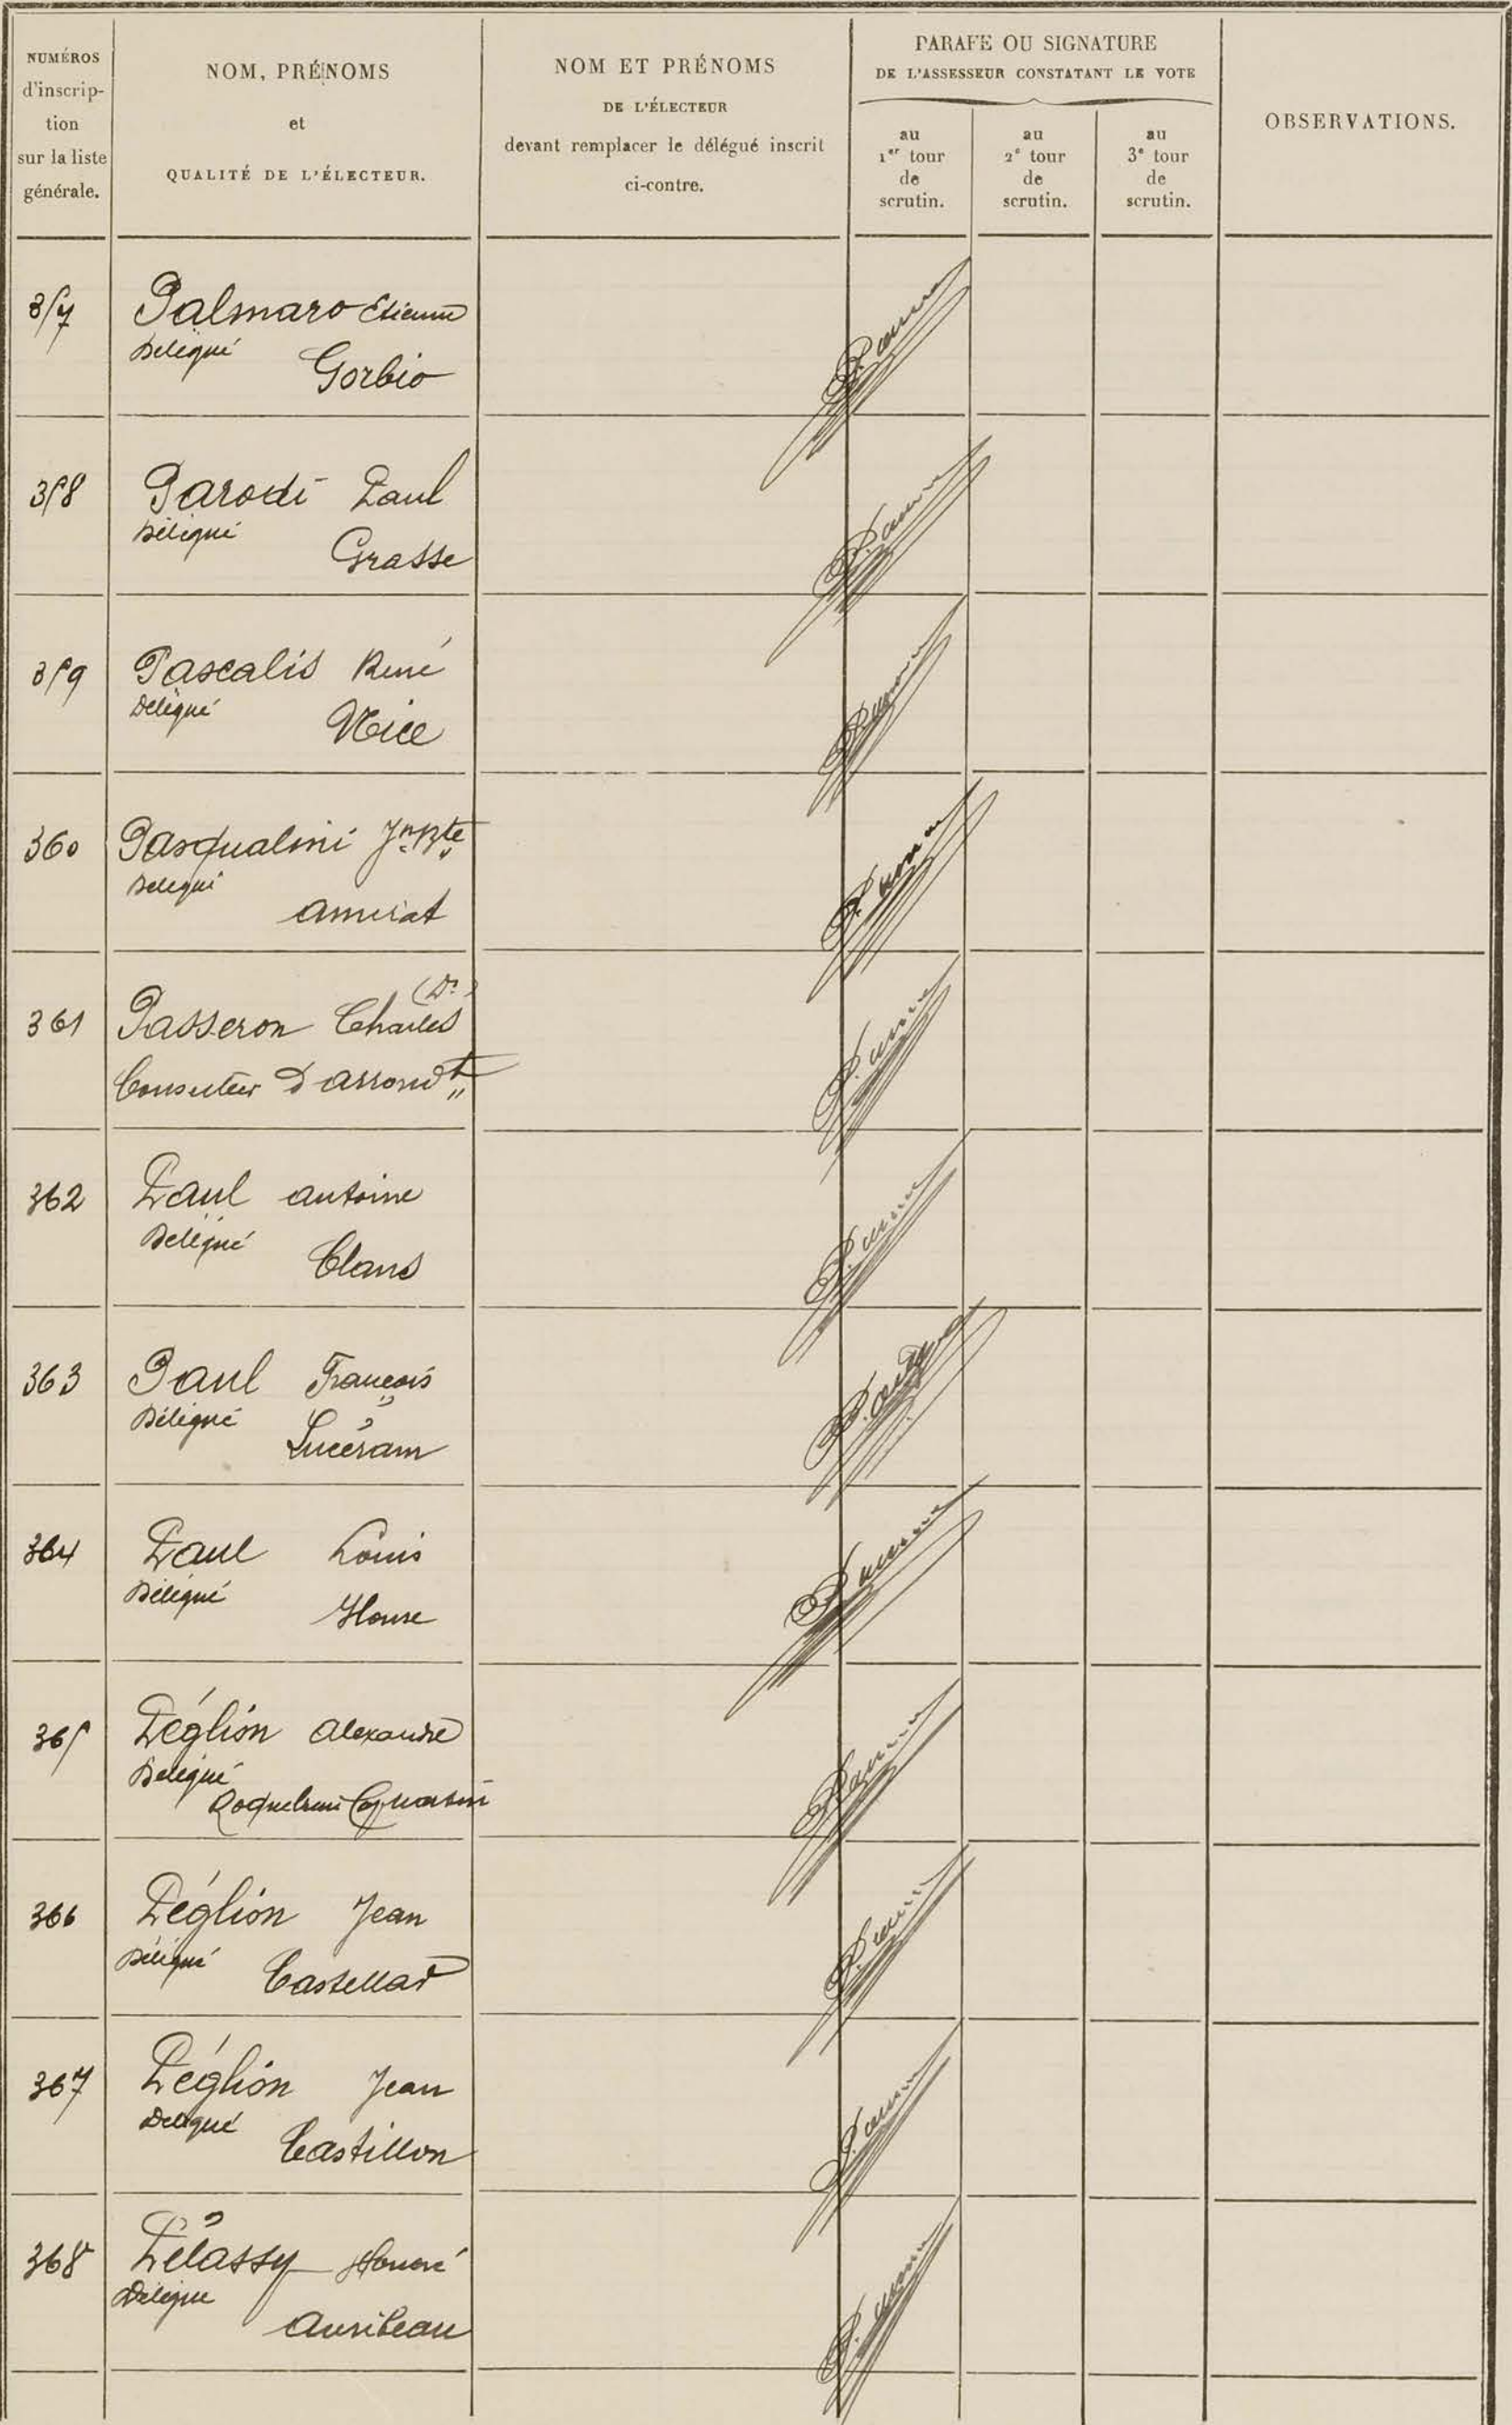 NUMÉROS
d'inscrip-
tion
sur la liste
générale.
NOM, PRÉNOMS
et
QUALITÉ DE L'ÉLECTEUR.
NOM ET PRÉNOMS
DE L'ÉLECTEUR
devant remplacer le délégué inscrit
ci-contre.
PARAFE OU SIGNATURE
DE L'ASSESSEUR CONSTATANT LE VOTE
au
1er tour
de
scrutin.
au
2e tour
de
scrutin.
au
3e tour
de
scrutin.
OBSERVATIONS.
357 Palmaro Etienne
Délégué Gorbio
358 Parodi Paul
Délégué Grasse
359 Pascalis René
Délégué Nice
360 Pasqualini Jn Bte
Délégué Amirat
361 Passeron Charles (Dr)
Conseiller d'arrondt
362 Paul Antoine
Délégué Clans
363 Paul François
Délégué Lucéram
364 Paul Louis
Délégué Ilonse
365 Péglion Alexandre
Délégué
Roquebrune Cap Martin
366 Péglion Jean
Délégué Castellar
367 Péglion Jean
Délégué Castillon
368 Pélassy Honoré
Délégué
Auribeau